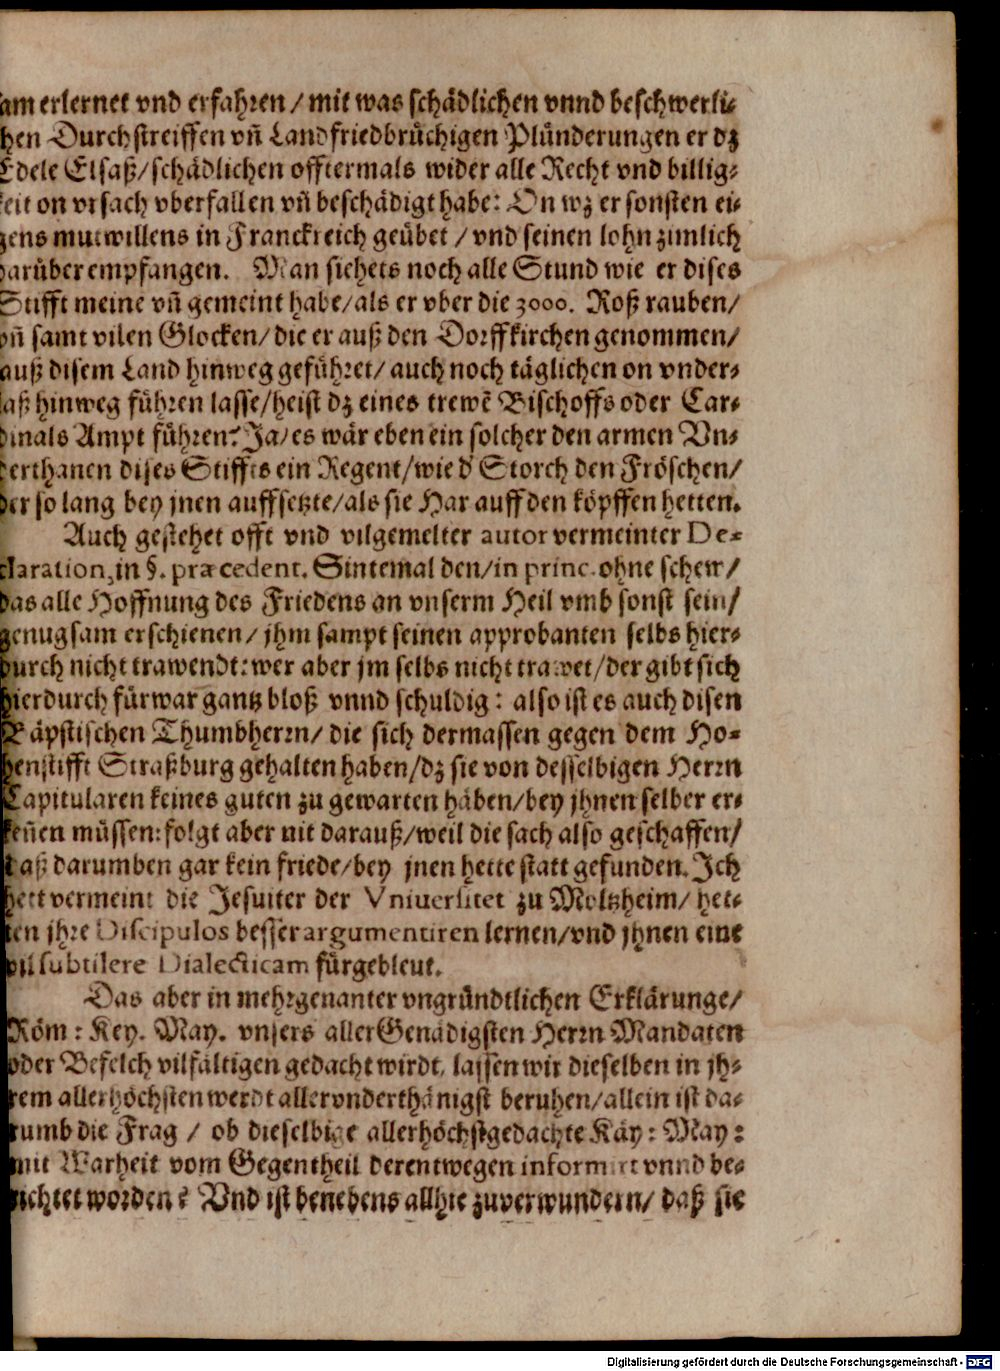 am erlernet vnd erfahren / mit was schädlichen vnnd beschwerli⸗
hen Durchstreiffen vñ Landfriedbrüchigen Plünderungen er dz
Edele Elsaß/schädlichen offtermals wider alle Recht vnd billig⸗
keit on vrsach vberfallen vñ beschädigt habe: On wz er sonsten ei⸗
gens mutwillens in Franckreich geübet / vnd seinen lohn zimlich
darüber empfangen. Man sichets noch alle Stund wie er dises
Stifft meine vñ gemeint habe/als er vber die 3000. Roß rauben/
vñ samt vilen Glocken/ die er auß den Dorffkirchen genommen/
auß disem Land hinweg geführet/ auch noch täglichen on vnder⸗
laß hinweg führen lasse/heist dz eines trewẽ Bischoffs oder Car⸗
dinals Ampt führen? Ja/es wär eben ein solcher den armen Vn⸗
derthanen dises Stiffts ein Regent/wie d' Storch den Fröschen/
der so lang bey jnen auffsetzte/als sie Har auff den köpffen hetten.
Auch gestehet offt vnd vilgemelter autor vermeinter De⸗
claration, in §. præcedent. Sintemal den/in princ. ohne schew/
das alle Hoffnung des Friedens an vnserm Heil vmb sonst sein/
genugsam erschienen/ jhm sampt seinen approbanten selbs hier⸗
durch nicht trawendt: wer aber jm selbs nicht trawet/der gibt sich
hierdurch fürwar gantz bloß vnnd schuldig: also ist es auch disen
Päpstischen Thumbherrn/ die sich dermassen gegen dem Ho⸗
henstifft Straßburg gehalten haben/dz sie von desselbigen Herrn
Capitularen keines guten zu gewarten häben/bey jhnen selber er⸗
keñen müssen: folgt aber nit darauß/weil die sach also geschaffen/
daß darumben gar kein friede/bey jnen hette statt gefunden. Jch
hett vermeint die Jesuiter der Vniuersitet zu Moltzheim/ het⸗
ten jhre Discipulos besser argumentiren lernen/vnd jhnen eine
vil subtilere Dialecticam fürgebleut.
Das aber in mehrgenanter vngründtlichen Erklärunge/
Röm: Key. May. vnsers allerGenädigsten Herrn Mandaten
oder Befelch vilfältigen gedacht wirdt, lassen wir dieselben in jh⸗
rem allerhöchsten werdt allervnderthänigst beruhen/allein ist da⸗
rumb die Frag / ob dieselbige allerhöchstgedachte Käy: May:
mit Warheit vom Gegentheil derentwegen informirt vnnd be⸗
richtet worden? Vnd ist benebens allhie zuverwundern/ daß sie
Digitalisierung gefördert durch die Deutsche Forschungsgemeinschaft - DFG